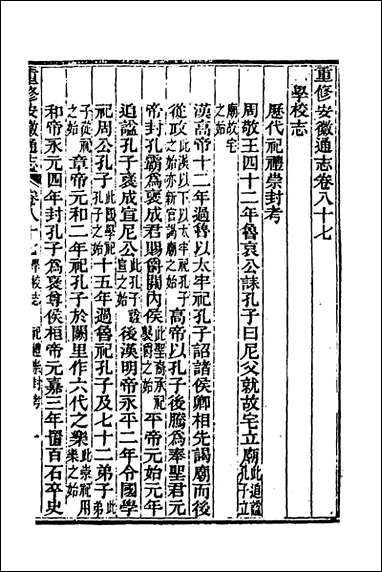 重修安徽通志卷八十七
學校志
歷代祀禮崇封考
周敬王四十二年魯哀公誄孔子曰尼父就故宅立廟此追諡孔子立
廟故宅
之始
漢高帝十二年過魯以太牢祀孔子詔諸侯卿相先謁廟而後
從政此漢以下以太牢祀孔子
之始亦新官謁廟之始高帝以孔子後騰為奉聖君元
帝封孔霸為褒成君賜爵關內侯此聖裔承祀
襲爵之始平帝元始元年
追諡孔子褒成宣尼公此孔子諡
宣之始後漢明帝永平二年令國學
祀周公孔子此國學祀
孔子之始十五年過魯祀孔子及七十二弟子此弟
子從祀
之始章帝元和二年祀孔子於闕里作六代之樂此崇祀用
樂之始
和帝永元四年封孔子為褒尊侯桓帝元嘉三年置百石卒史
重修安徽通志
卷八十七
學校志
祀禮崇封考
一